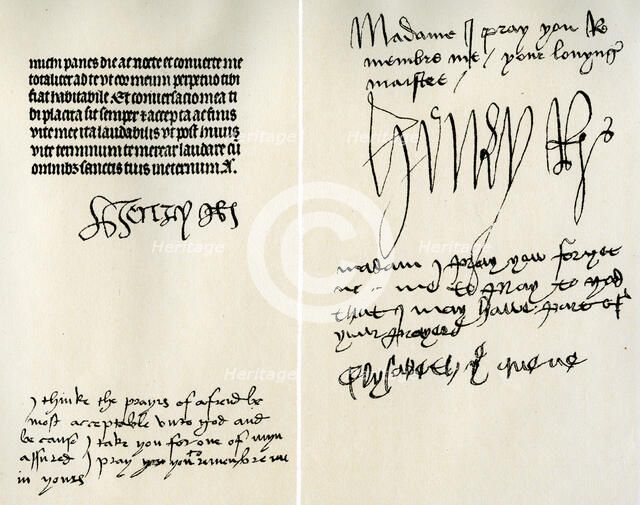 michi panes die ac nocte et converte me
totaliter ad te ut cor meum perpetuo tibi
fiat habitabile Et conversacio mea ti
di placita sit semper & accepta ac finis
vite mee ita laudabilis ut post huius
vite terminum te merear laudare cū
omnibus sanctis tuis in eternum
Henry R
I thinke the prayrs of a frend be
most acceptable unto god and
be cause I take you for one of myn
assured I pray you remembre me
in yours
Madame I pray you Re
membre me your lovyng
maister
Henry R
madam I pray you forget
not me to pray to god
that I may have part of
your prayers
Elysabeth ye quene
Heritage
Heritage
Heritage
Heritage
Heritage
Heritage
C